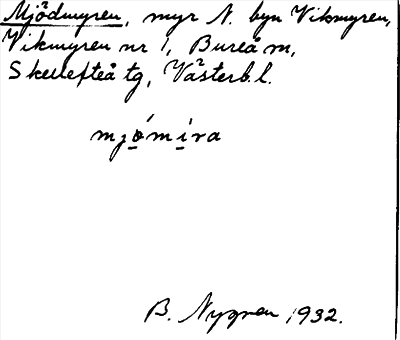 Mjödmyren, myr N. byn Vikmyren,
Vikmyren nr 1, Bureå m,
Skellefteå tg, Västerb.l.
mjó̱mi̱ra
B. Nygren 1932.